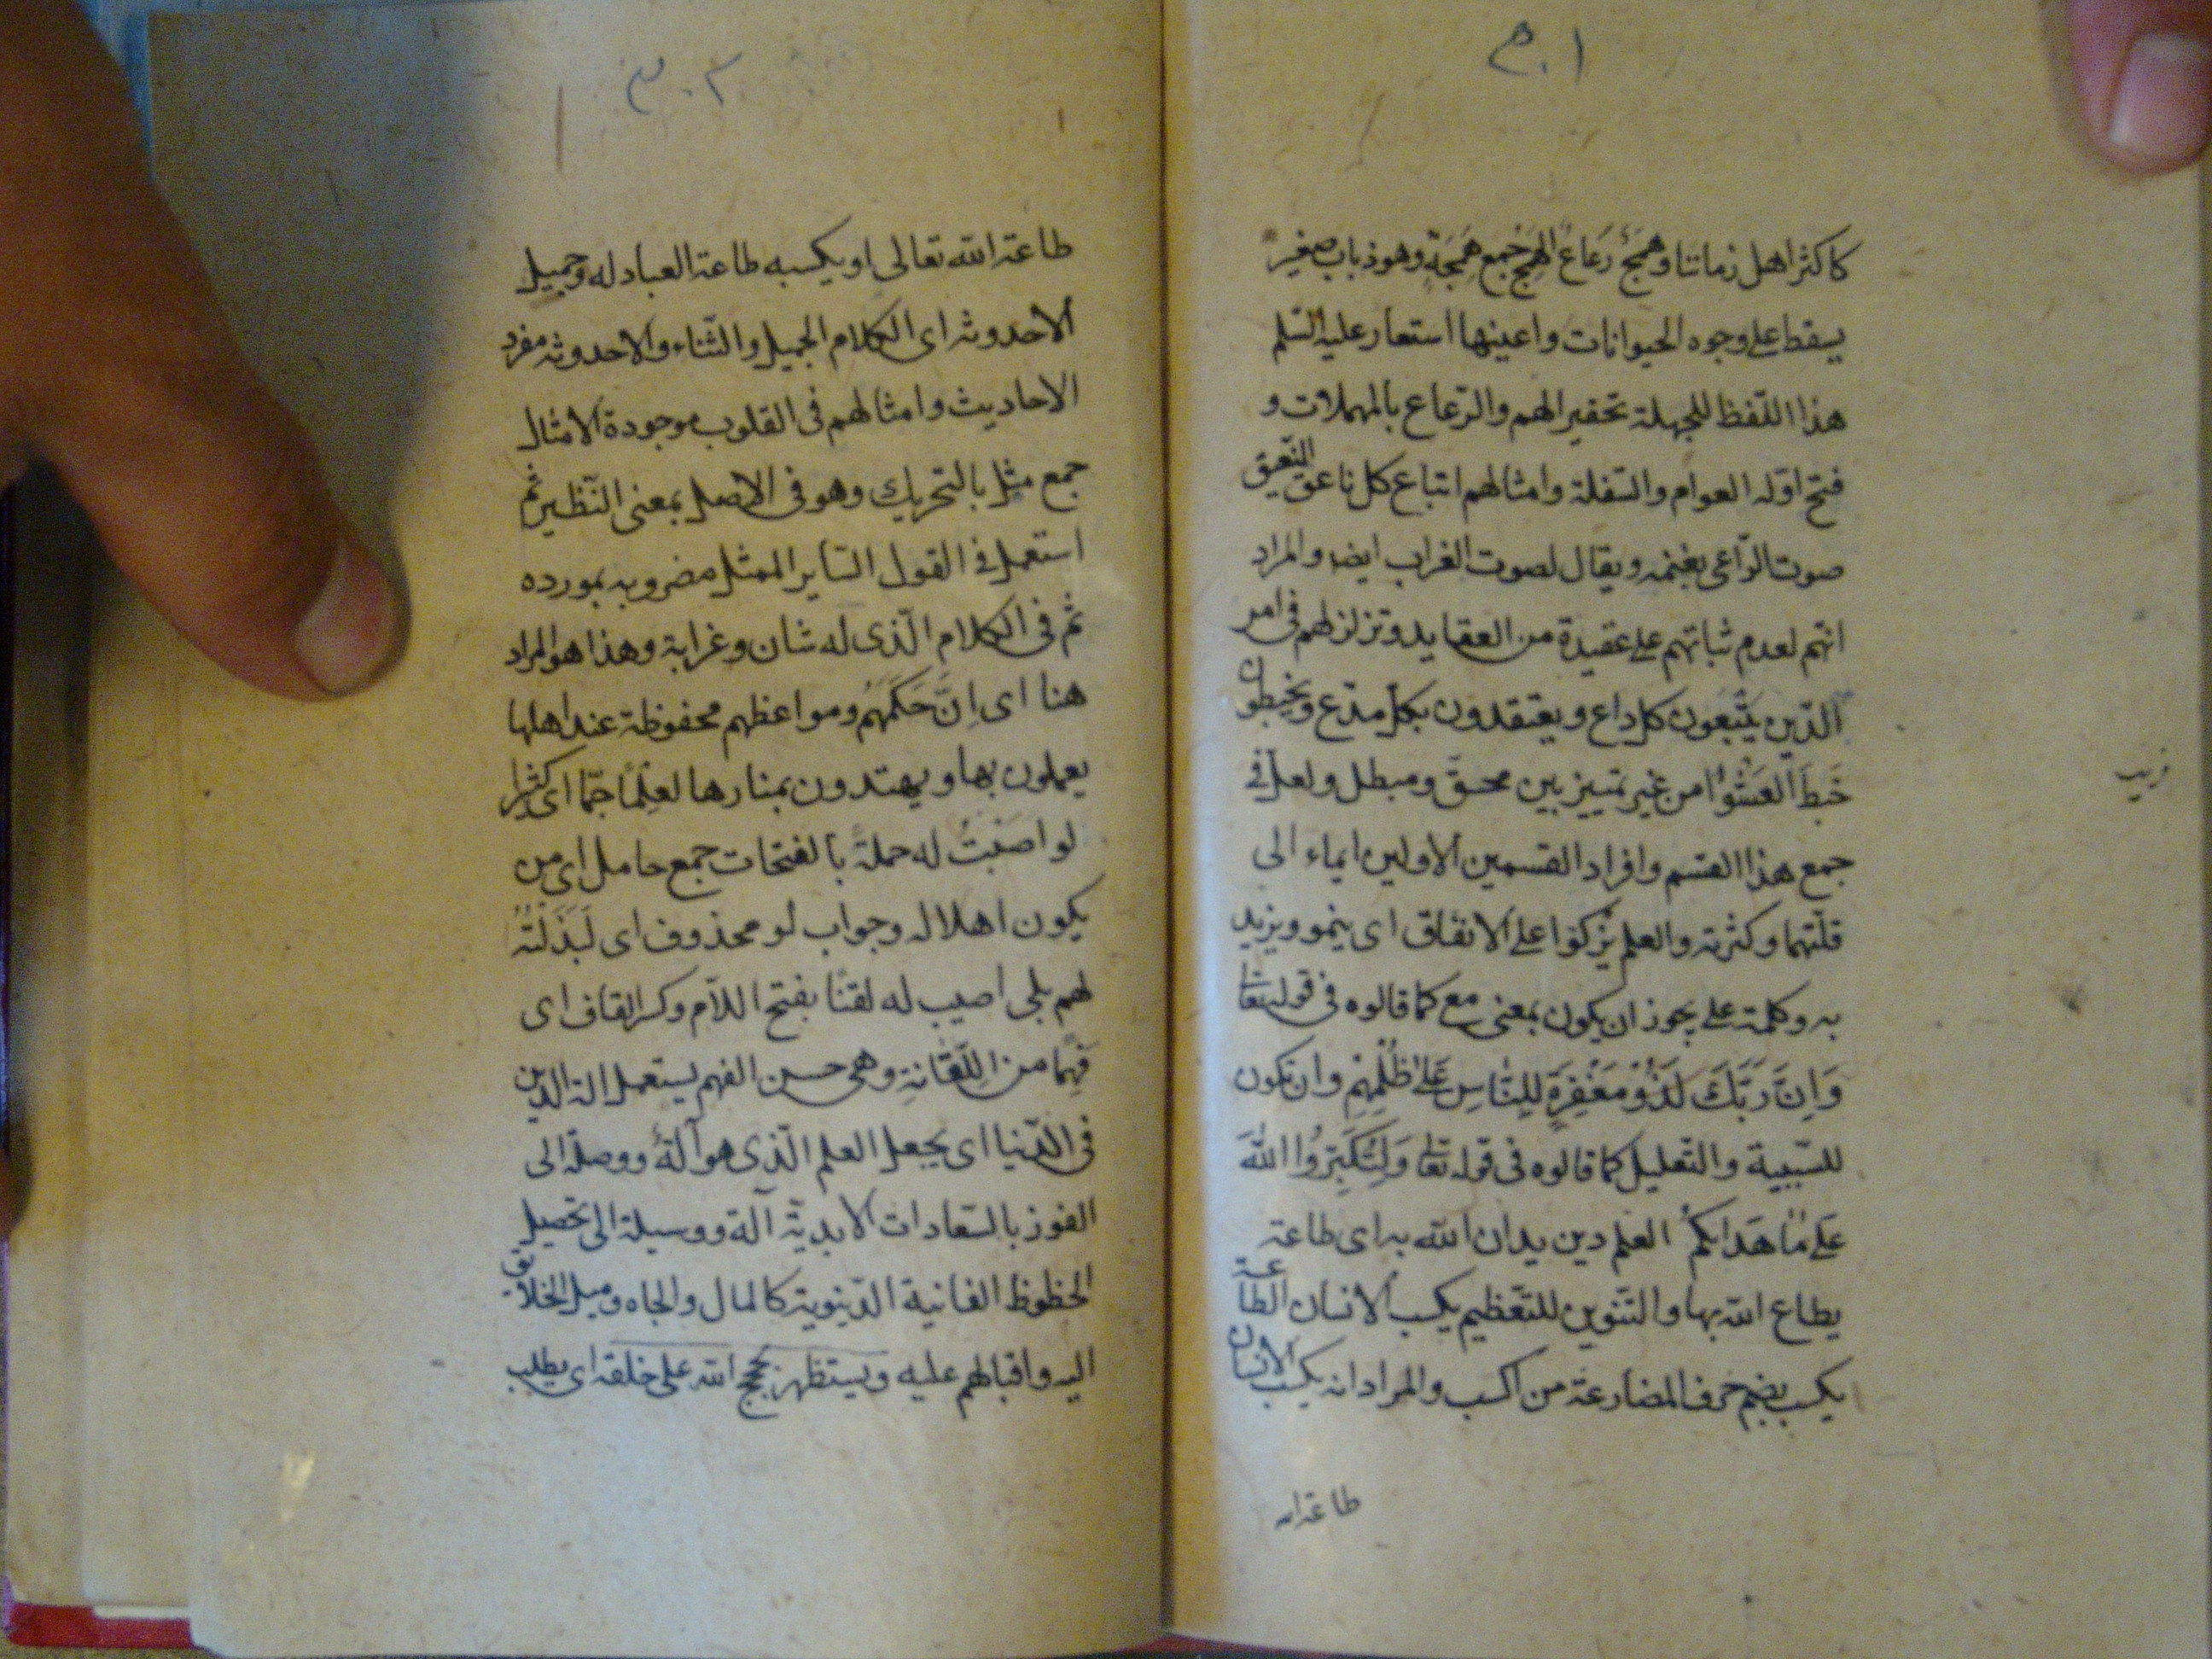 ٣٠١
كاكثر اهل زماننا وهَمَجٌ رَعاعٌ الهَمَج جمع هَمَجَة وهو ذباب صغير
يسقط على وجوه الحيوانات واعينها استعار عليه السّلم
هذا اللّفظ للجهلة تحقيرا لهم والرّعاع بالمهملات و
فتح اوّله العوام والسّفلة وامثالهم اتباع كل ناعق النّعيق
صوت الرّاعى بغنمه ويقال لصوت الغراب ايضا والمراد
انّهم لعدم ثباتهم على عقيدة من العقايد وتزلزلهم فى امر
الدّين يتّبعون كل داع ويعتقدون بكل مدّع ويخبطون
خَبطَ العَشْوا من غير تمييز بين محقّ ومبطل ولعل فى
جمع هذا القسم وافراد القسمين الاولين ايماء الى
قلّتهما وكثرته والعلم يَزْكوا على الانفاق اى ينمو ويزيد
به وكلمة على يجوز ان يكون بمعنى مع كما قالوه فى قوله تعا
وَاِنَّ رَبَّكَ لَذُو مَغْفِرَةٍ لِلنّاسِ عَلىٰ ظُلْمِهِمْ وان تكون
للسّببية والتّعليل كما قالوه فى قوله تعا وَلِتُكَبِّرُوا اللهَ
عَلىٰ مٰا هَدٰاكُمْ العلم دين يدان الله به اى طاعة
يطاع الله بها والتّنوين للتّعظيم يكسب الانسان الطّاعة
يكسب بضم حرف المضارعة من اكسب والمراد انه يكسب الانسان
طاعة الله
٣٠٢
طاعة الله تعالى او يكسبه طاعة العباد له وجميل
الاحدوثه اى الكلام الجميل والثّناء والاحدوثه مفرد
الاحاديث وامثالهم فى القلوب موجودة الامثال
جمع مثل بالتحريك وهو فى الاصل بمعنى النّظير ثم
استعمل فى القول السّاير الممثل مضروبه بمورده
ثم فى الكلام الّذى له شان وغرابة وهذا هو المراد
هنا اى اِنَّ حَكَمَهُم ومواعظهم محفوظة عند اهلها
يعملون بها ويهتدون بمنارها لعِلْمًا جمّا اى كثيرا
لو اصَبْتُ له حملة بالفتحات جمع حامل اى من
يكون اهلا له وجواب لو محذوف اى لَبَذَلْتُهُ
لهم بلى اصيب له لقنًا بفتح اللّام وكسر القاف اى
فَهِمًا من اللّقانةِ وهى حسن الفهم يستعمل الة الدّين
فى الدّنيا اى يجعل العلم الّذى هو آلة ووصلة الى
الفوز بالسّعادات الابديّة آلة ووسيلة الى تحصيل
الحظوظ الفانية الدّينوية كالمال والجاه وميل الخلايق
اليه واقبالهم عليه ويستظهر بحجج الله على خلقه اى يطلب